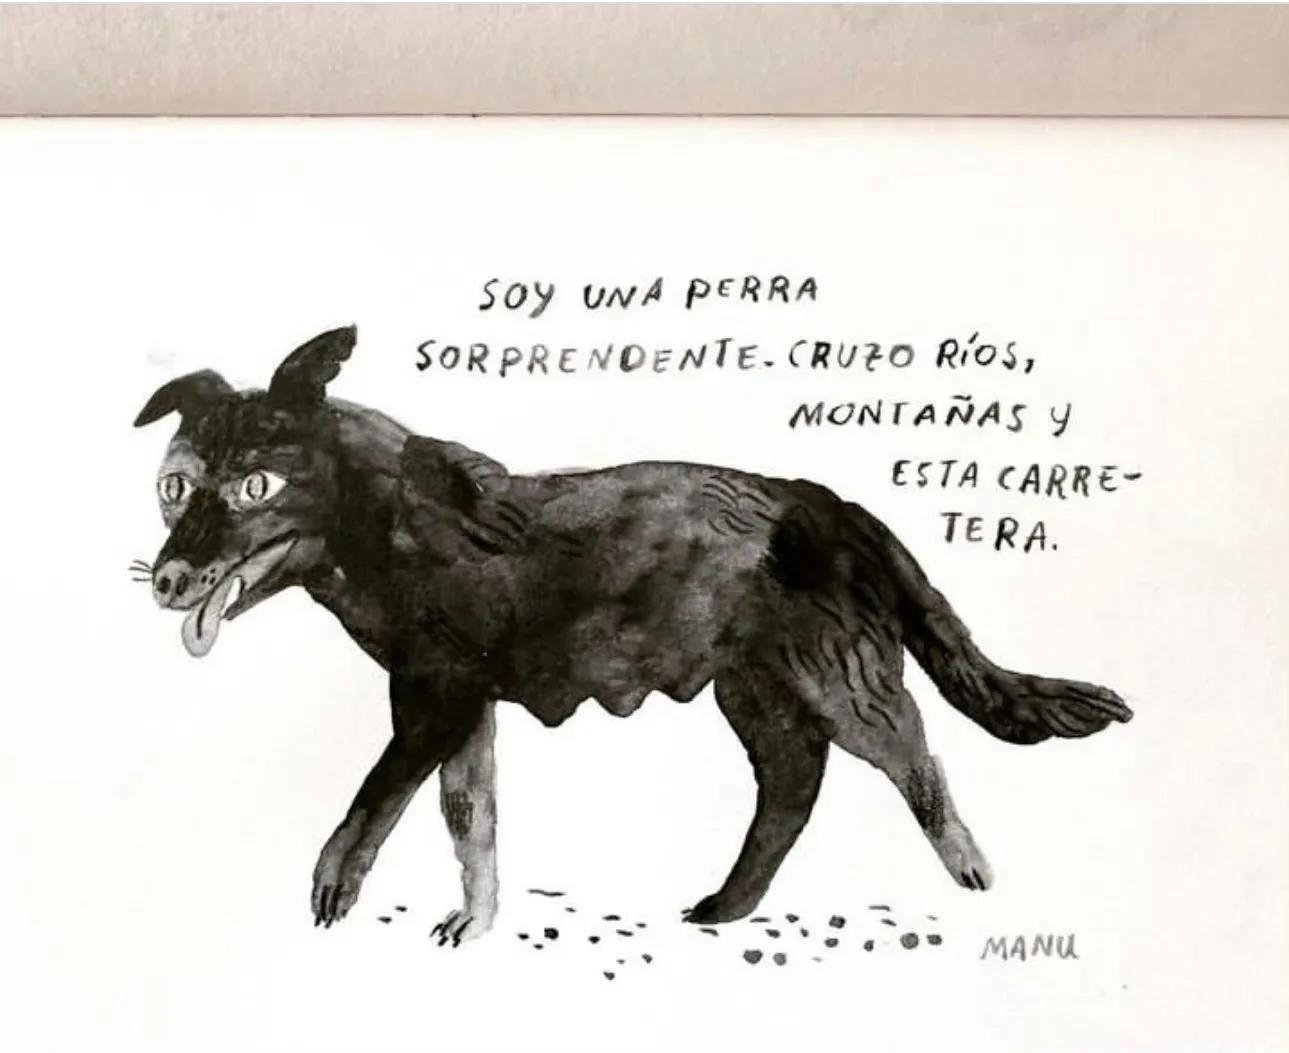 SOY UNA PERRA
SORPRENDENTE. CRUZO RÍOS,
MONTAÑAS Y
ESTA CARRE-
TERA.
MANU